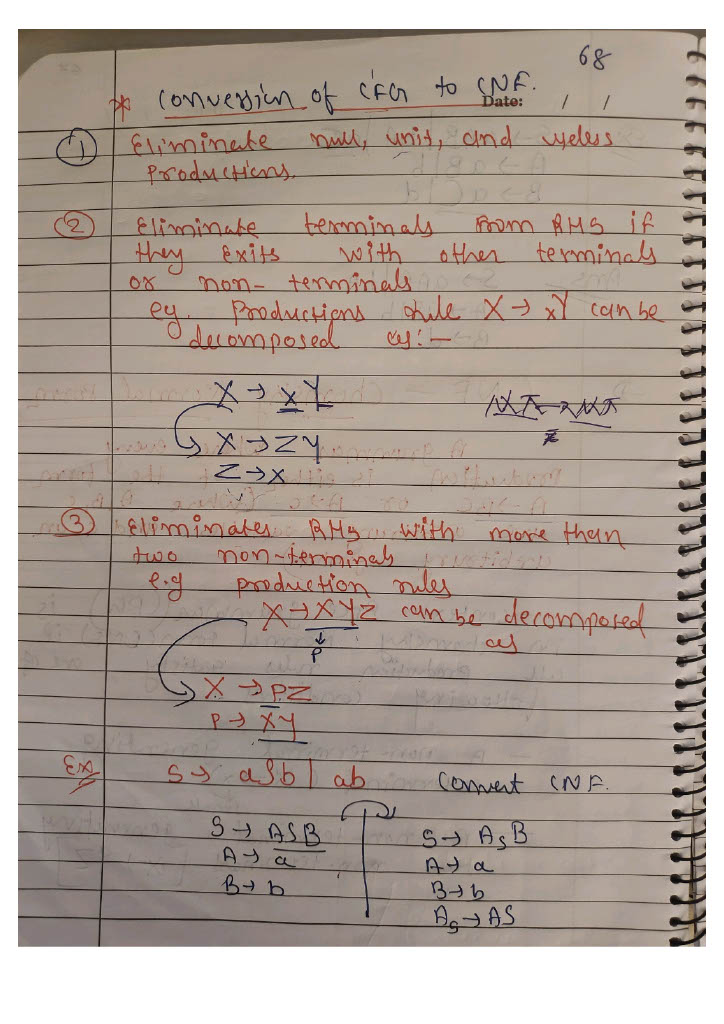 68
* Conversion of CFG to CNF.
Date: / /
① Eliminate null, unit, and useless
Productions.
② Eliminate terminals From RHS if
they exits with other terminals
or non-terminals
eg. Productions rule X → xY can be
decomposed as:-
X → xY
X → ZY
Z → x
③ Eliminates RHS with more than
two non-terminals
e.g production rules
X → XYZ can be decomposed
as
P
X → PZ
P → XY
Ex S → aSb | ab Convert CNF.
S → ASB
A → a
B → b
S → A_SB
A → a
B → b
A_S → AS